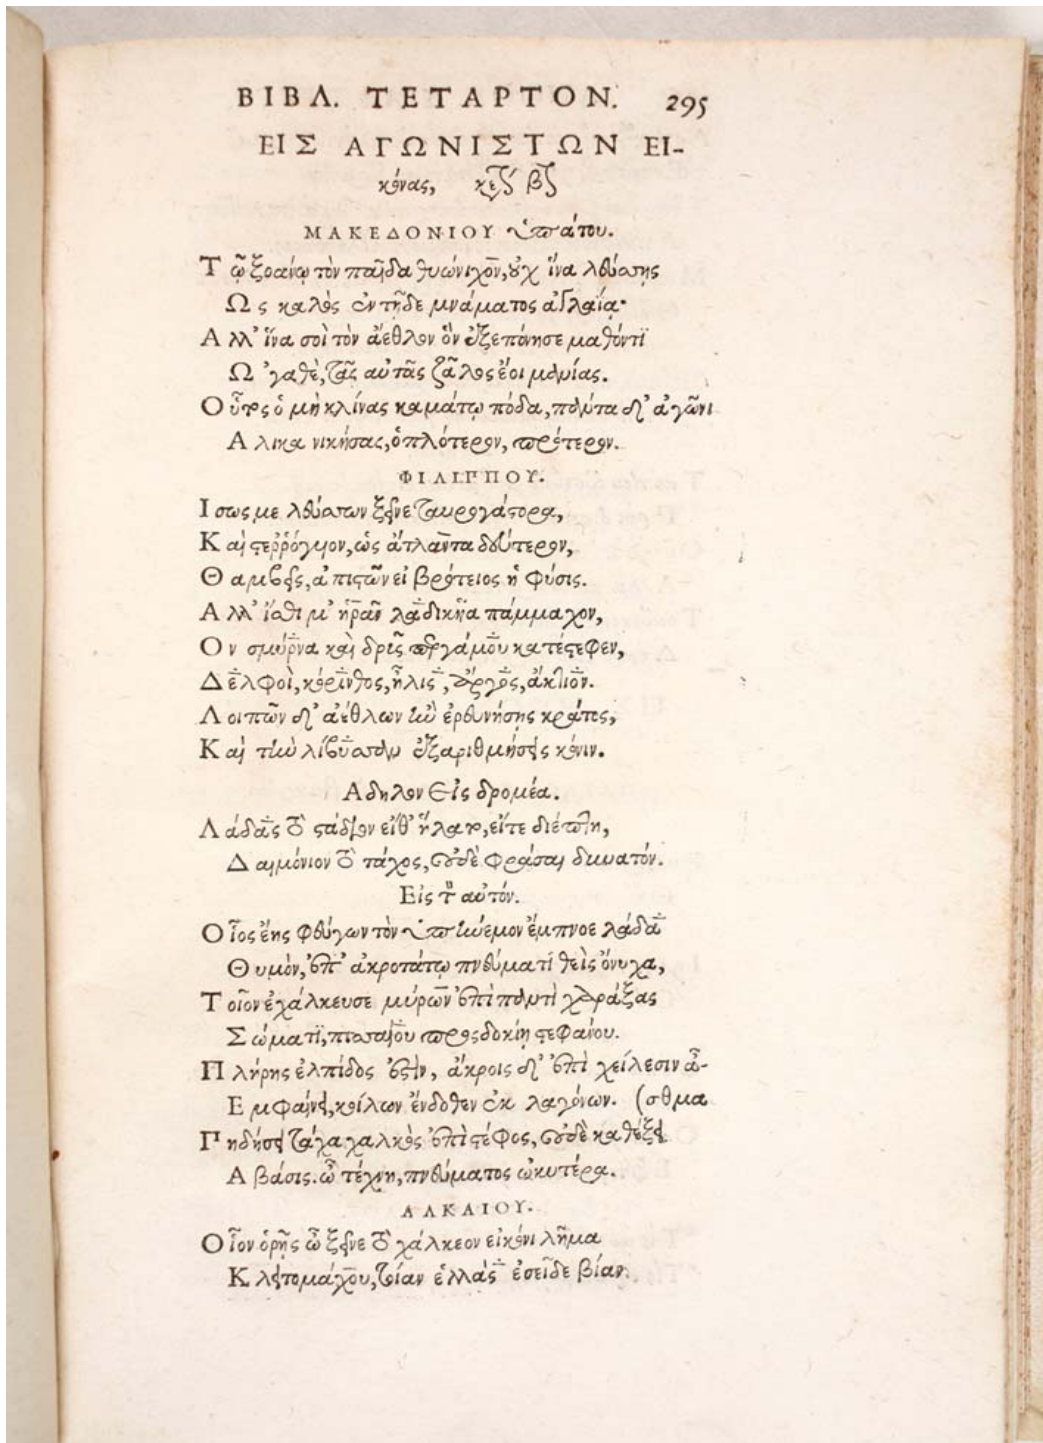 ΒΙΒΛ. ΤΕΤΑΡΤΟΝ. 295
ΕΙΣ ΑΓΩΝΙΣΤΩΝ ΕΙ-
κόνας,
ΜΑΚΕΔΟΝΙΟΥ ὑπάτου.
Τῷ ξοάνῳ τὸν παῖδα θυώνιχον, οὐχ ἵνα λεύσσης
Ως καλὸς ἐν τῇδε μνάματος ἀγλαίᾳ·
Αλλ' ἵνα σοὶ τὸν ἄεθλον ὃν ἐξεπόνησε μαθόντι
Ω 'γαθὲ, τᾶς αὐτᾶς ζᾶλος ἔοι μανίας.
Οὗτος ὁ μὴ κλίνας καμάτῳ πόδα, πάντα δ' ἀγῶνι
Αλικα νικήσας, ὁπλότερον, πρότερον.
ΦΙΛΙΠΠΟΥ.
Ισως με λεύσσων ξεῖνε ταυρογάστορα,
Καὶ στερρόγυιον, ὡς ἄτλαντα δεύτερον,
Θαμβεῖς, ἀπιστῶν εἰ βρότειος ἡ φύσις.
Αλλ' ἴσθι μ' ἡρᾶν λαδικῆα πάμμαχον,
Ον σμύρνα καὶ δρῦς περγάμου κατέστεφεν,
Δελφοὶ, κόρινθος, ἦλις, ἄργος, ἄκτιον.
Λοιπῶν δ' ἀέθλων ἢν ἐρευνήσης κράτος,
Καὶ τὴν λίβυσσαν ἐξαριθμήσεις κόνιν.
Αδηλον Εἰς δρομέα.
Λάδας τὸ στάδιον εἴθ' ἥλατο, εἴτε διέπτη,
Δαιμόνιον τὸ τάχος, οὐδὲ φράσαι δυνατόν.
Εἰς τὸν αὐτόν.
Οἷος ἔης φεύγων τὸν ὑπήνεμον ἔμπνοε λάδα
Θυμὸν, ἐπ' ἀκροτάτῳ πνεύματι θεὶς ὄνυχα,
Τοῖον ἐχάλκευσε μύρων ἐπὶ παντὶ χαράξας
Σώματι, πισσαίου προσδοκίην στεφάνου.
Πλήρης ἐλπίδος ἐστὶν, ἄκροις δ' ἐπὶ χείλεσιν ἆ-
Εμφαίνει, κοίλων ἔνδοθεν ἐκ λαγόνων. (σθμα
Πηδήσει τάχα χαλκὸς ἐπὶ στέφος, οὐδὲ καθέξει
Α βάσις. ὦ τέχνη, πνεύματος ὠκυτέρα.
ΑΛΚΑΙΟΥ.
Οἷον ὁρῇς ὦ ξεῖνε τὸ χάλκεον εἰκόνι λῆμα
Κλειτομάχου, τοίαν ἑλλὰς ἐσεῖδε βίαν.